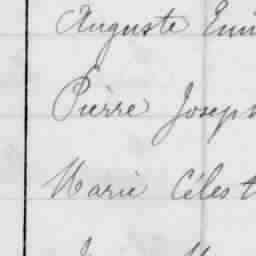 Auguste
Pierre Joseph
Marie Célest